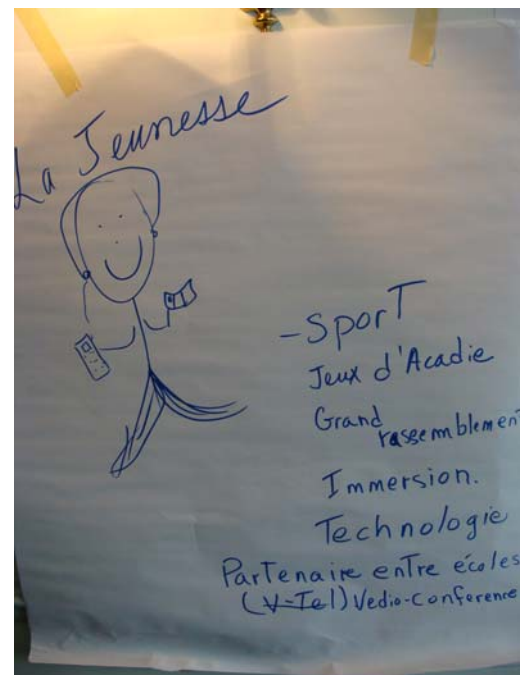 La Jeunesse
-SporT
Jeux d'Acadie
Grand
rassemblement
Immersion.
Technologie
ParTenaire enTre écoles
(V-Tel) Vedio-Conference